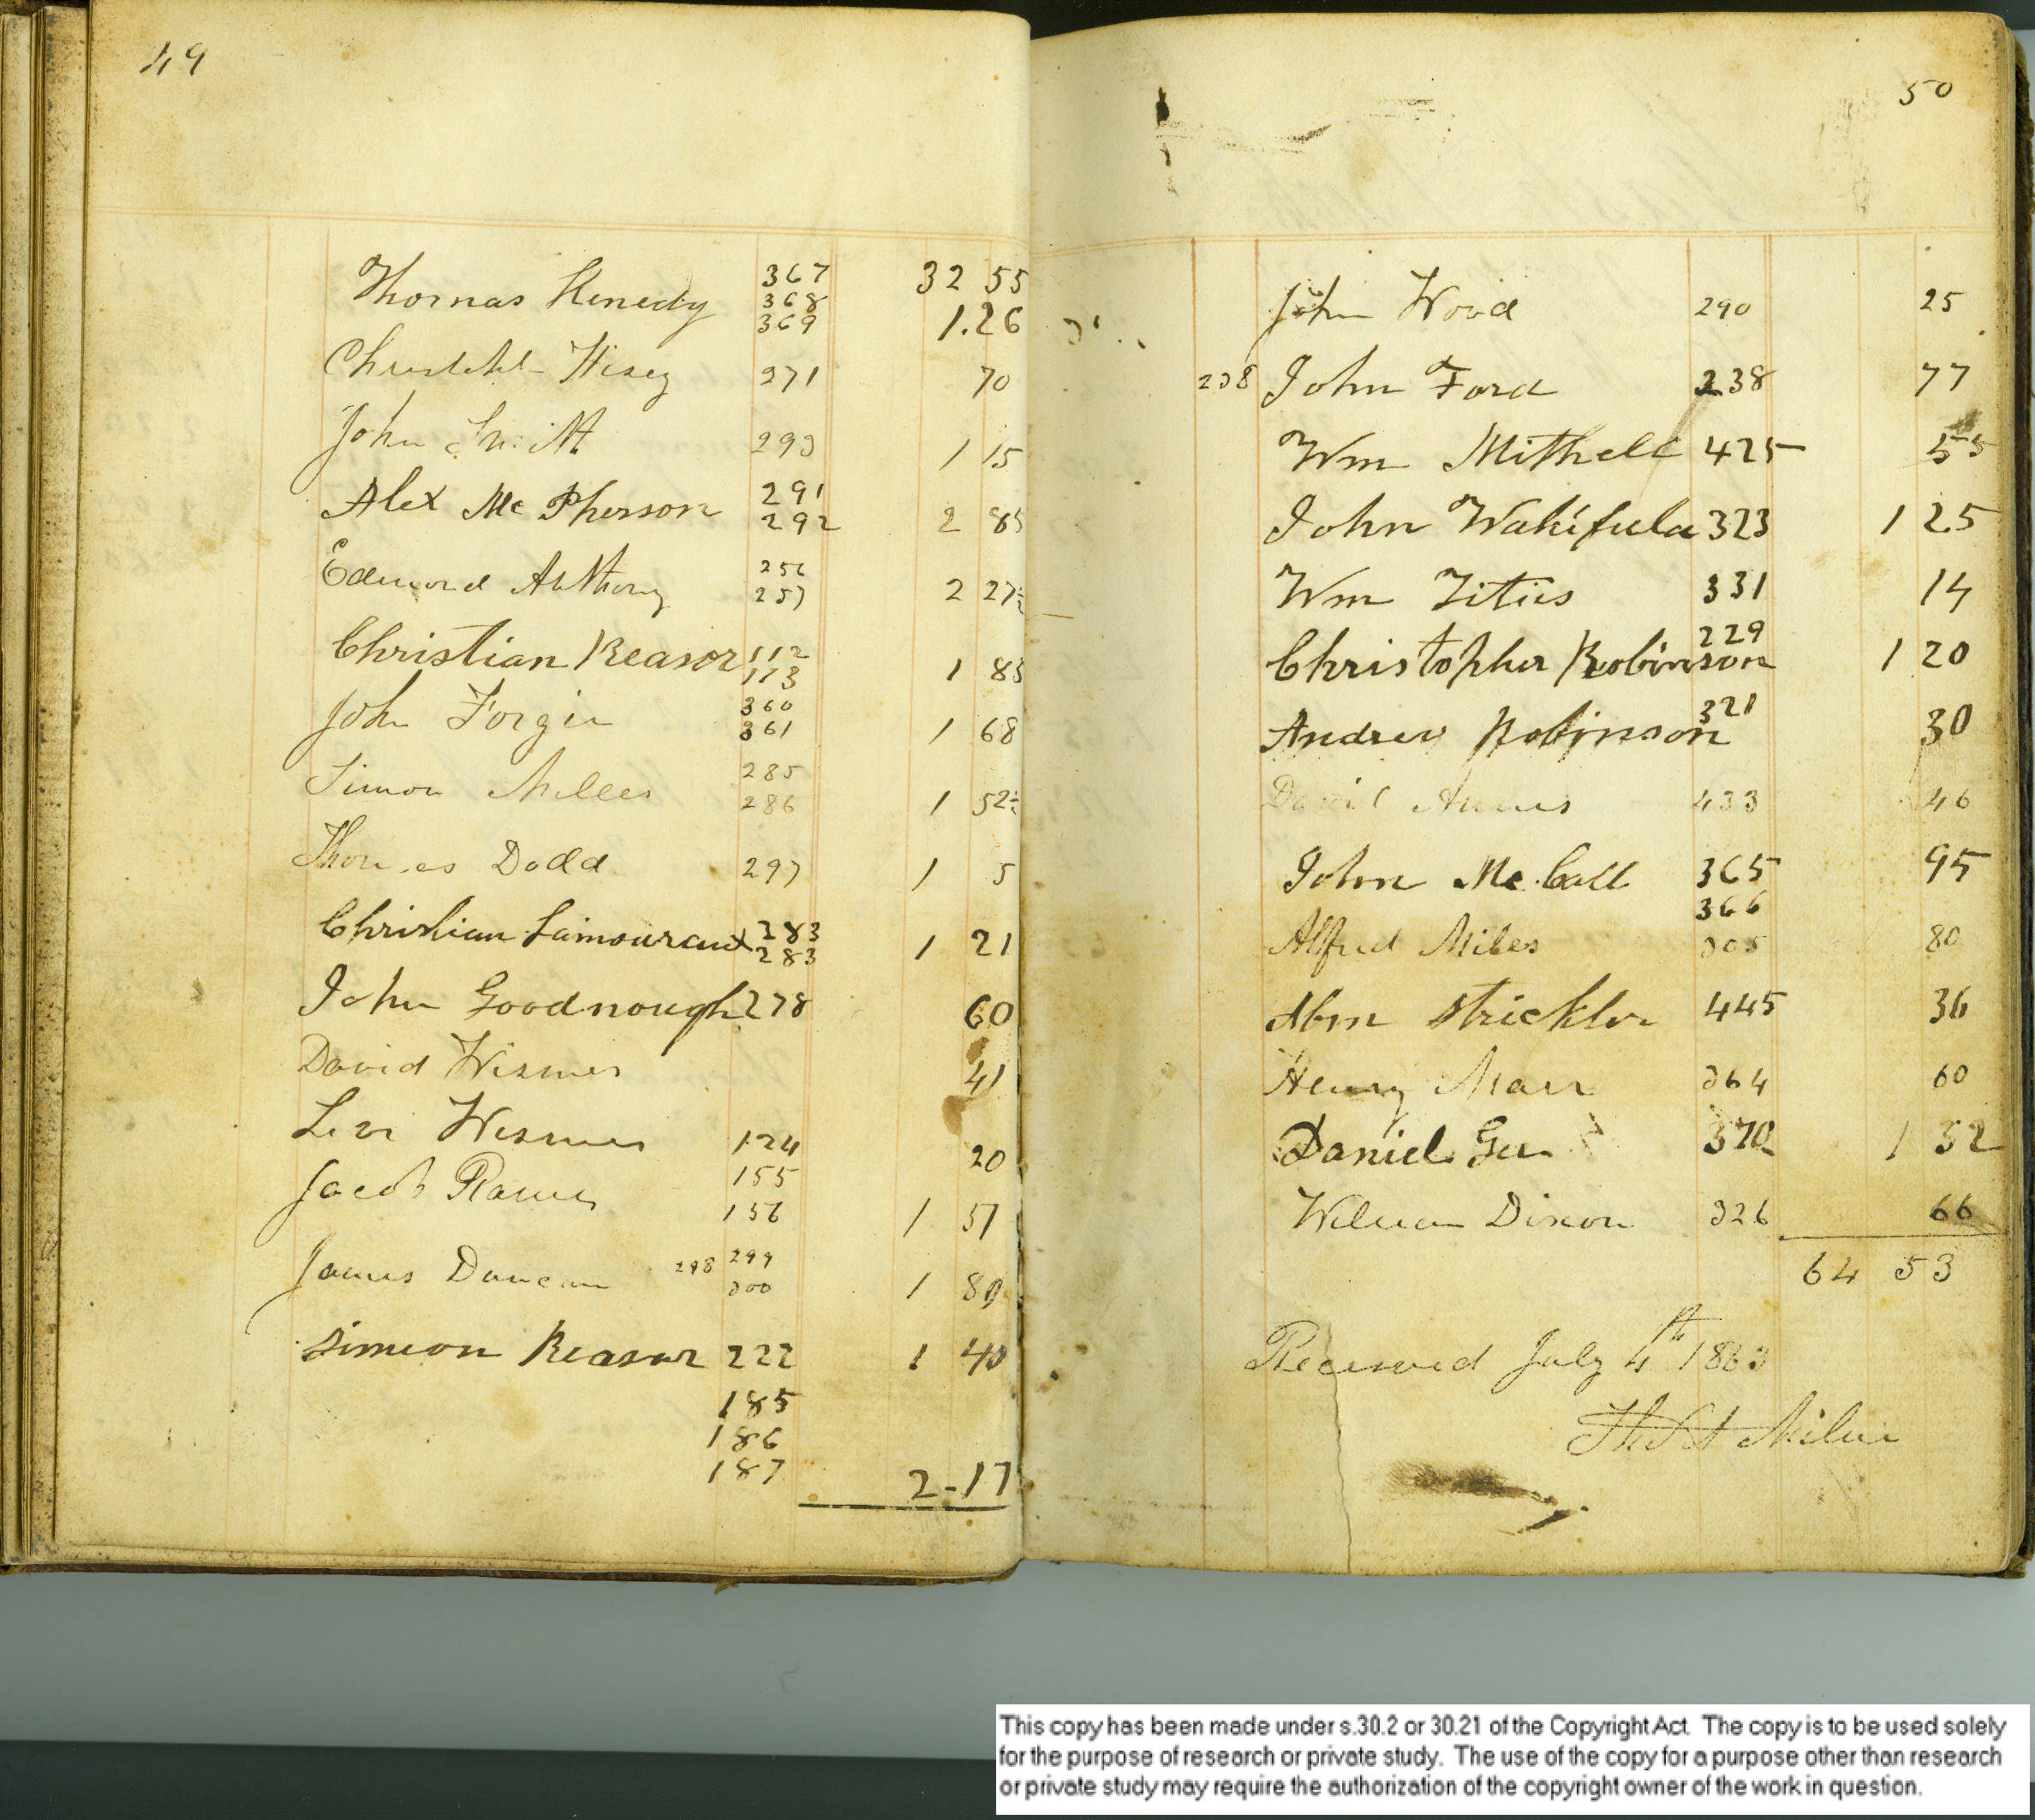 49
367 32 55
Thomas Kenedy 368
369 1.26
Hisey 271 70
John Smith 293 1 15
291
Alex Mc Pherson 292 2 85
256
Edmond Anthony 257 2 27½
Christian Reasor 112
113 1 83
360
John Forgie 361 1 68
285
Simon Miller 286 1 52½
Thomas Dodd 297 1 5
Christian Lamourant 283
283 1 21
John Goodnough 278 60
David Wismer 41
Levi Wismer 124 20
155
Jacob 156 1 57
299
James Duncan 298 300 1 80
Simeon Reasor 222 1 40
185
186
187 2-17
50
John Wood 290 25
238 John Ford 238 77
Wm Mithell 425 55
John 323 1 25
Wm Titus 331 14
229
Christopher Robinson 1 20
321
Andrew Robinson 30
David 433 46
John Mc Call 365 95
366
Alfred Miles 305 80
Abm Strickler 445 36
Henry Marr 364 60
Daniel Gee 370 1 52
William Dixon 326 66
64 53
Received July 4th 1863
Milne
This copy has been made under s.30.2 or 30.21 of the Copyright Act. The copy is to be used solely
for the purpose of research or private study. The use of the copy for a purpose other than research
or private study may require the authorization of the copyright owner of the work in question.